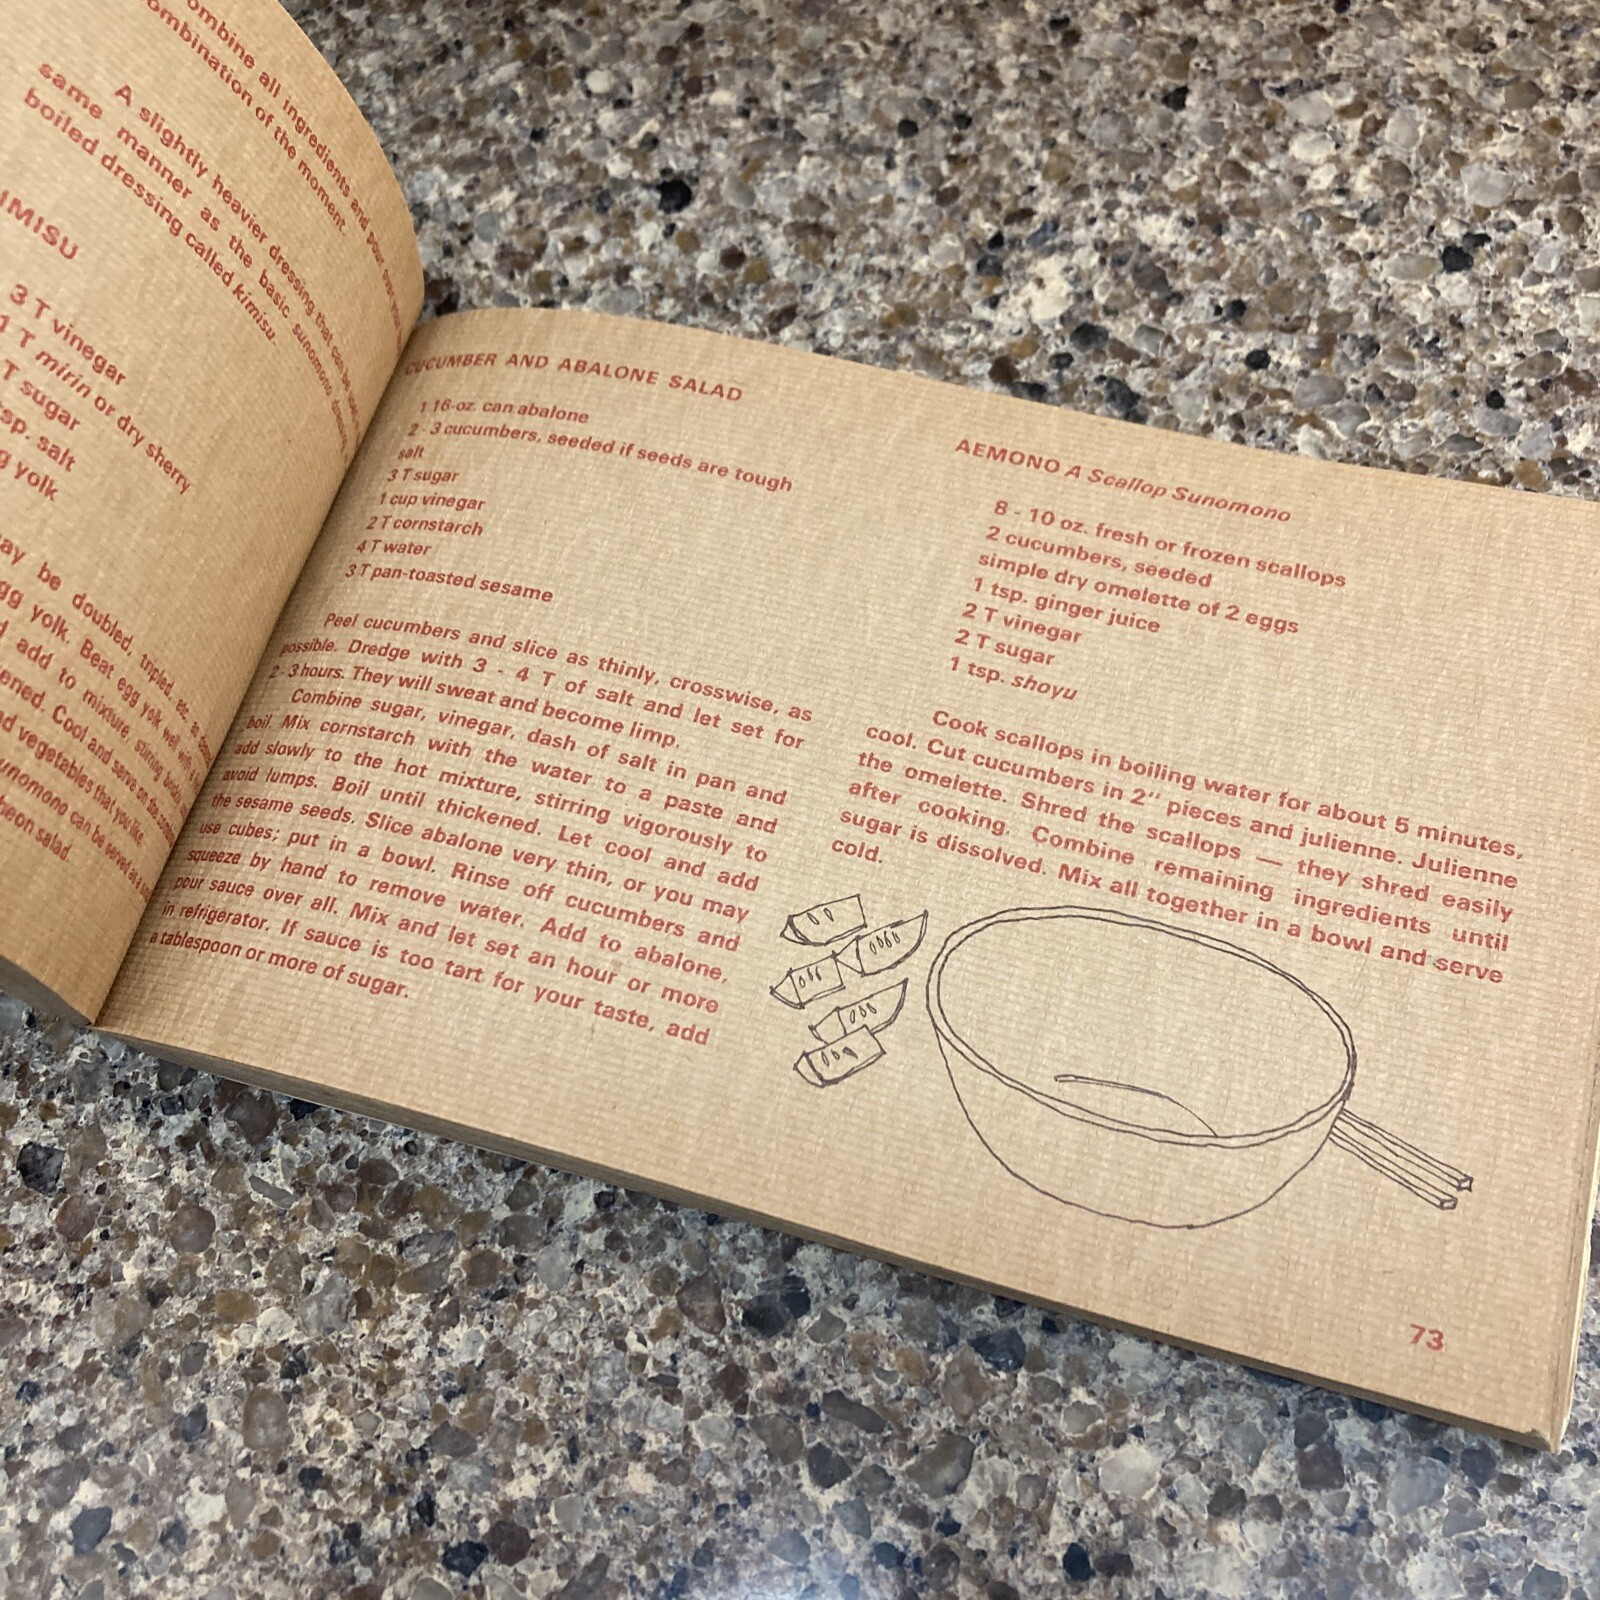 ombine all ingredients and pour over your
ombination of the moment.
A slightly heavier dressing that can be used
same manner as the basic sunomono dressing
boiled dressing called kimisu.
IMISU
3 T vinegar
1 T mirin or dry sherry
T sugar
tsp. salt
g yolk
ay be doubled, tripled, etc. as
gg yolk. Beat egg yolk well with
d add to mixture, stirring
ened. Cool and serve on
nd vegetables that you like.
unomono can be served as a
heon salad.
CUCUMBER AND ABALONE SALAD
1 16-oz. can abalone
2 - 3 cucumbers, seeded if seeds are tough
salt
3 T sugar
1 cup vinegar
2 T cornstarch
4 T water
3 T pan-toasted sesame
Peel cucumbers and slice as thinly, crosswise, as
possible. Dredge with 3 - 4 T of salt and let set for
2 - 3 hours. They will sweat and become limp.
Combine sugar, vinegar, dash of salt in pan and
boil. Mix cornstarch with the water to a paste and
add slowly to the hot mixture, stirring vigorously to
avoid lumps. Boil until thickened. Let cool and add
the sesame seeds. Slice abalone very thin, or you may
use cubes; put in a bowl. Rinse off cucumbers and
squeeze by hand to remove water. Add to abalone,
pour sauce over all. Mix and let set an hour or more
in refrigerator. If sauce is too tart for your taste, add
a tablespoon or more of sugar.
AEMONO A Scallop Sunomono
8 - 10 oz. fresh or frozen scallops
2 cucumbers, seeded
simple dry omelette of 2 eggs
1 tsp. ginger juice
2 T vinegar
2 T sugar
1 tsp. shoyu
Cook scallops in boiling water for about 5 minutes,
cool. Cut cucumbers in 2" pieces and julienne. Julienne
the omelette. Shred the scallops — they shred easily
after cooking. Combine remaining ingredients until
sugar is dissolved. Mix all together in a bowl and serve
cold.
73